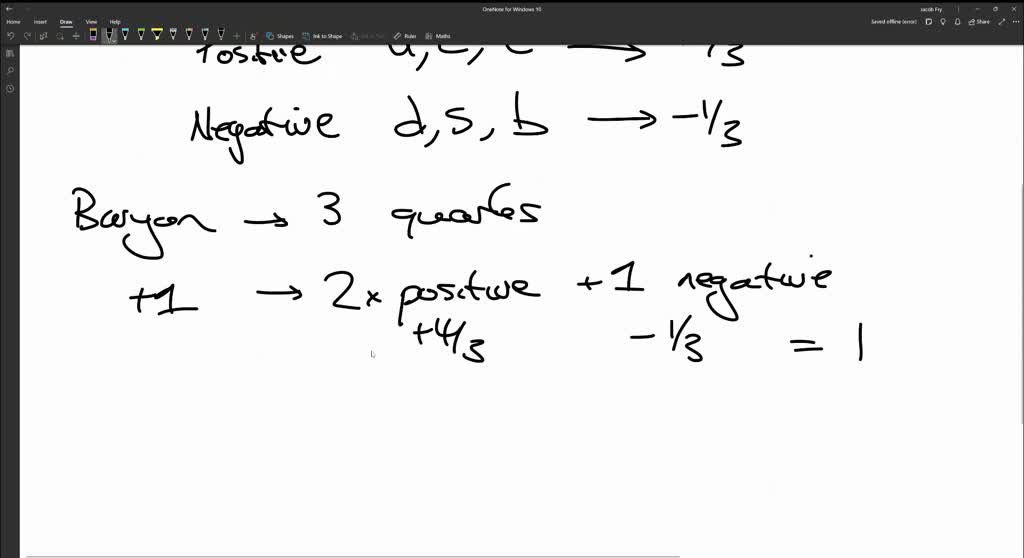 OneNote for Windows 10
Jacob Fry
Home Insert Draw View Help
Saved offline (error) Share
Shapes Ink to Shape Ruler Maths
Positive
Negative d, s, b → -1/3
Baryon → 3 quarks
+1 → 2 × positive +1 negative
+4/3 -1/3 = 1